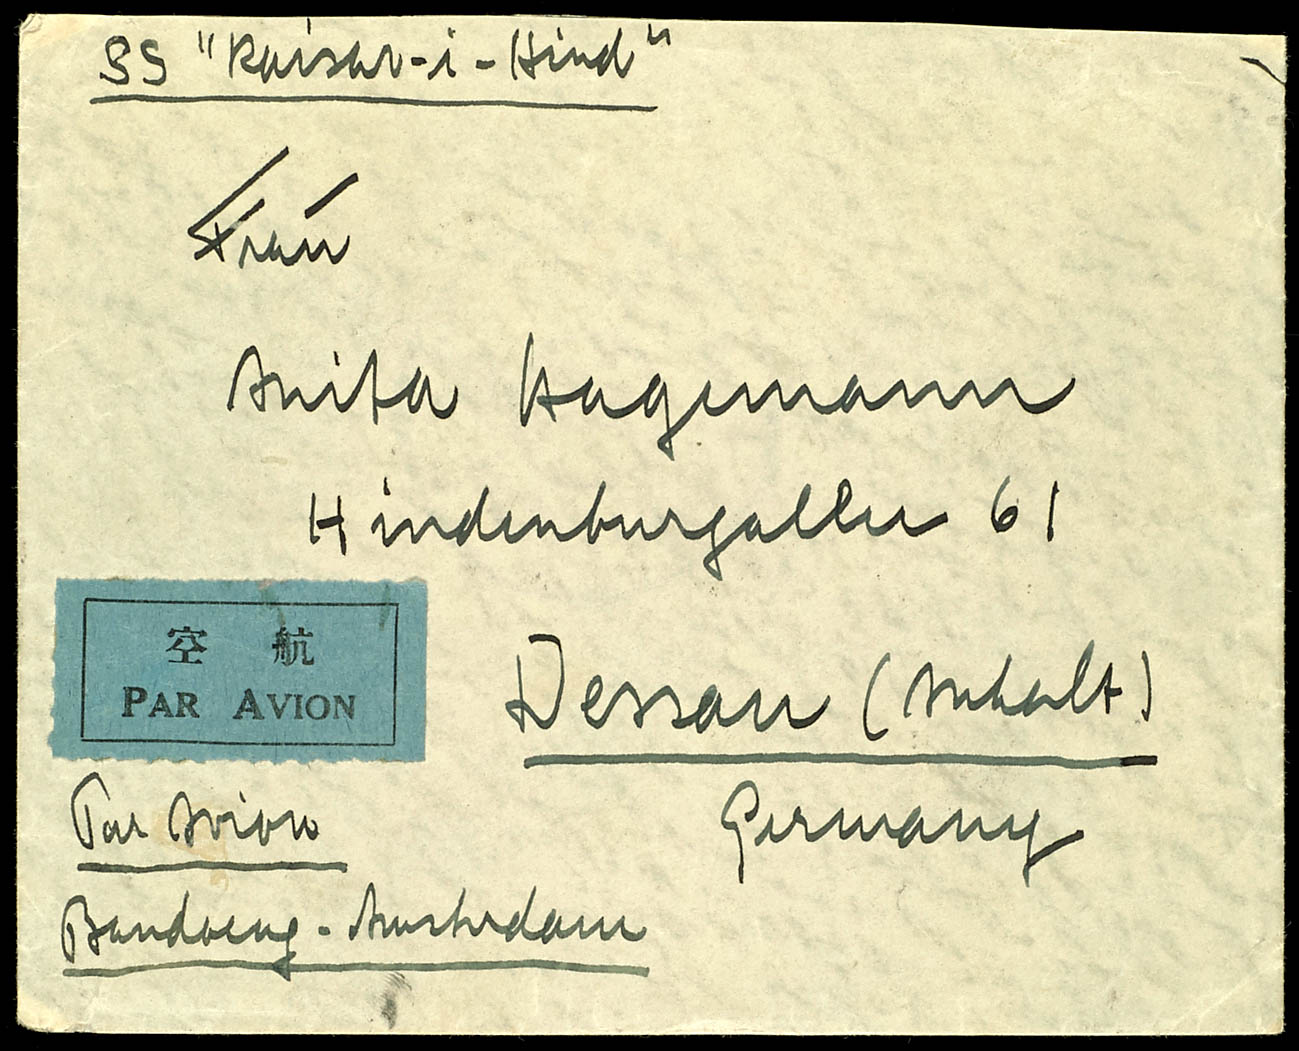 SS "Kaisar-i-Hind"
Frau
Anita Hagemann
Hindenburgallee 61
空 航
PAR AVION
Dessau (Anhalt)
Par Avion
Germany
Bandoeng-Amsterdam